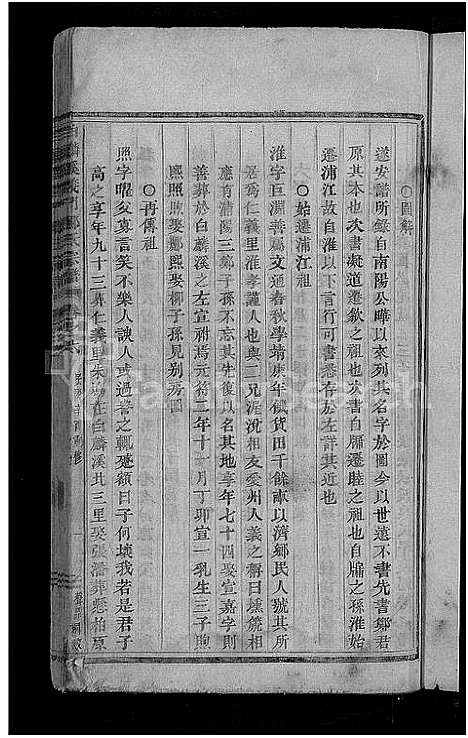 〇圖解
遂安譜所錄自南陽公曄以來列其名字於圖今以世遠不書先書鄉君
原其本也次書凝道遷歙之祖也次書自牖遷睦之祖也自牖之孫淮始
遷浦江故自淮以下言行可書悉存於左詳其近也
〇始遷浦江祖
淮字巨淵善屬文通春秋學靖康年饑貨田千餘畝以濟鄉民人號其所
居為仁義里淮孝謹人也與二兄渥沈相友愛州人義之稱曰 相
應有浦陽三鄭子孫不忘其先復以名其地享年七十四娶宣嘉字則
善葬於白麟溪之左宣祔焉元符二年十一月丁卯宣一乳生三子煦
熙照煦娶鄭熙娶柳子孫見別房圖
〇再傳祖
照字曜父寡言笑不樂人諛人或過譽之輒蹙額曰子何 我若是君子
高之享年九十三葬仁義里朱 在白麟溪北三里娶張 葬 柏原
白麟溪義門鄭氏宗譜